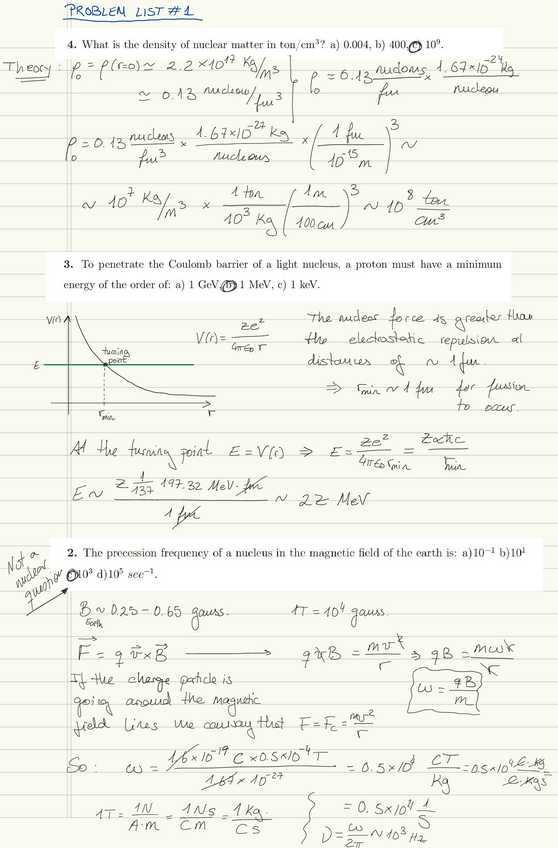 PROBLEM LIST #1
4. What is the density of nuclear matter in ton/cm³? a) 0.004, b) 400, c) 10⁹.
Theory: ρ₀ = ρ(r=0) ≃ 2.2×10¹⁷ Kg/m³
≃ 0.13 nucleon/fm³
ρ₀ = 0.13 nucleons/fm × 1.67×10⁻²⁴ kg/nucleon
ρ₀ = 0.13 nucleons/fm³ × 1.67×10⁻²⁷ Kg/nucleons × (1 fm/10⁻¹⁵ m)³ ~
~ 10⁷ Kg/m³ × 1 ton/10³ Kg (1m/100cm)³ ~ 10⁸ ton/cm³
3. To penetrate the Coulomb barrier of a light nucleus, a proton must have a minimum
energy of the order of: a) 1 GeV, b) 1 MeV, c) 1 keV.
V(r)
E
turning
point
rmin
r
V(r) = ze²/4πε₀ r
The nuclear force is greater than
the electrostatic repulsion at
distances of ~ 1 fm.
⇒ rmin ~ 1 fm for fussion
to occur.
At the turning point E = V(r) ⇒ E = ze²/4πε₀ rmin = Zαħc/rmin
E ~ Z 1/137 197.32 MeV·fm/1 fm ~ 2Z MeV
2. The precession frequency of a nucleus in the magnetic field of the earth is: a)10⁻¹ b)10¹
c)10³ d)10⁵ sec⁻¹.
Not a
nuclear
question
B Earth ~ 0.25 - 0.65 gauss. 1T = 10⁴ gauss.
F = q v × B → qvB = mv²/r ⇒ qB = mωr/r
If the charge particle is
going around the magnetic
field lines we can say that F = Fc = mv²/r
ω = qB/m
So: ω = 1.6×10⁻¹⁹ C × 0.5×10⁻⁴ T/1.67×10⁻²⁷ = 0.5×10⁴ CT/Kg = 0.5×10⁴ C·kg/C·kg s
1T = 1N/A·m = 1Ns/Cm = 1Kg/Cs
= 0.5×10⁴ 1/s
ν = ω/2π ~ 10³ Hz